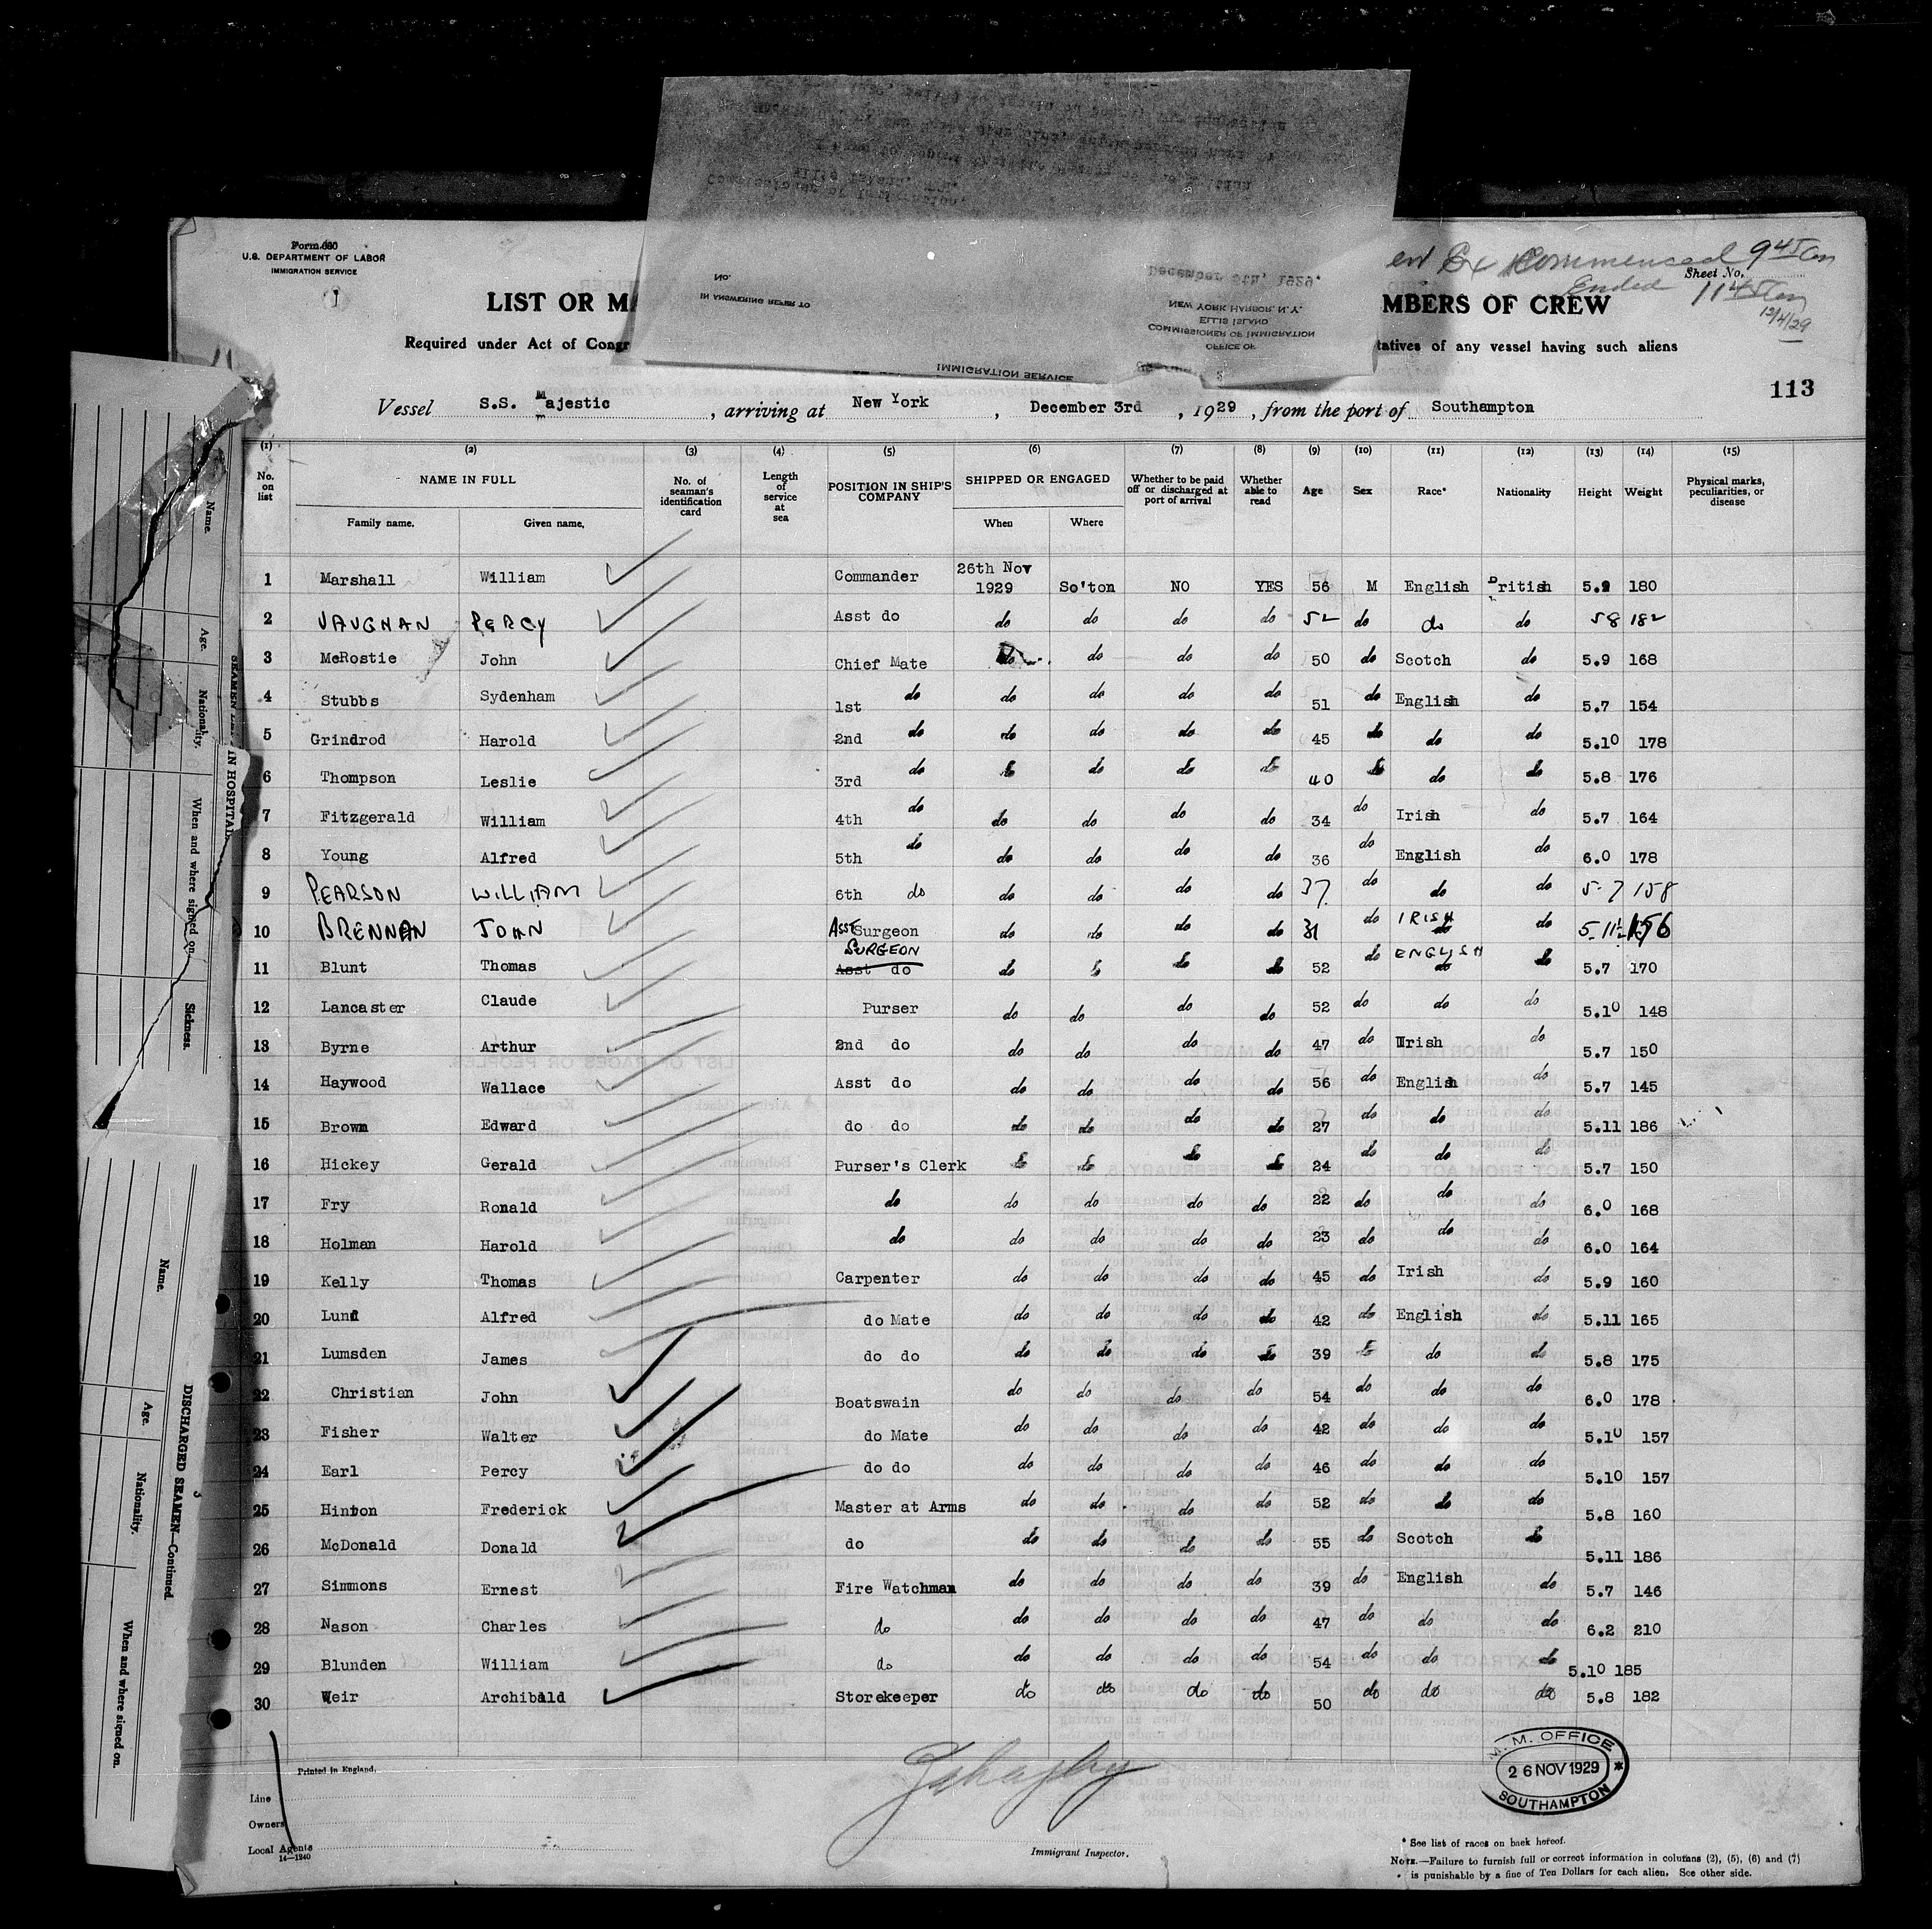 Form 680
U.S. DEPARTMENT OF LABOR
IMMIGRATION SERVICE
Commenced 9 45 am
Sheet No.
Ended 11 45 am
12/4/29
Commissioner of Immigration,
Ellis Island, N.Y.
No.
IN ANSWERING REFER TO
December 5th, 1929.
NEW YORK HARBOR, N.Y.
ELLIS ISLAND
COMMISSIONER OF IMMIGRATION
OFFICE OF
IMMIGRATION SERVICE
LIST OR MA MBERS OF CREW
Required under Act of Congr tatives of any vessel having such aliens
113
Vessel S.S. Majestic, arriving at New York, December 3rd, 1929, from the port of Southampton
(1) (2) (3) (4) (5) (6) (7) (8) (9) (10) (11) (12) (13) (14) (15)
No. on list NAME IN FULL No. of seaman's identification card Length of service at sea POSITION IN SHIP'S COMPANY SHIPPED OR ENGAGED Whether to be paid off or discharged at port of arrival Whether able to read Age Sex Race* Nationality Height Weight Physical marks, peculiarities, or disease
Family name. Given name. When Where
1 Marshall William Commander 26th Nov 1929 So'ton NO YES 56 M English British 5.9 180
2 VAUGHAN PERCY Asst do do do do do 52 do do do 58 182
3 McRostie John Chief Mate do do do do 50 do Scotch do 5.9 168
4 Stubbs Sydenham 1st do do do do do 51 do English do 5.7 154
5 Grindrod Harold 2nd do do do do do 45 do do do 5.10 178
6 Thompson Leslie 3rd do do do do do 40 do do do 5.8 176
7 Fitzgerald William 4th do do do do do 34 do Irish do 5.7 164
8 Young Alfred 5th do do do do do 36 do English do 6.0 178
9 PEARSON WILLIAM 6th do do do do do 37 do do do 5-7 158
10 BRENNAN JOHN ASST Surgeon do do do do 31 do IRISH do do 5-11½ 156
11 Blunt Thomas SURGEON Asst do do do do do 52 do ENGLISH do do 5.7 170
12 Lancaster Claude Purser do do do do 52 do do do 5.10 148
13 Byrne Arthur 2nd do do do do do 47 do Irish do 5.7 150
14 Haywood Wallace Asst do do do do do 56 do English do 5.7 145
15 Brown Edward do do do do do do 27 do do do 5.11 186
16 Hickey Gerald Purser's Clerk do do do do 24 do do do 5.7 150
17 Fry Ronald do do do do do 22 do do do 6.0 168
18 Holman Harold do do do do do 23 do do do 6.0 164
19 Kelly Thomas Carpenter do do do do 45 do Irish do 5.9 160
20 Lund Alfred do Mate do do do do 42 do English do 5.11 165
21 Lumsden James do do do do do do 39 do do do 5.8 175
22 Christian John Boatswain do do do do 54 do do do 6.0 178
23 Fisher Walter do Mate do do do do 42 do do do 5.10 157
24 Earl Percy do do do do do do 46 do do do 5.10 157
25 Hinton Frederick Master at Arms do do do do 52 do do do 5.8 160
26 McDonald Donald do do do do do 55 do Scotch do 5.11 186
27 Simmons Ernest Fire Watchman do do do do 39 do English do 5.7 146
28 Nason Charles do do do do do 47 do do do 6.2 210
29 Blunden William do do do do do 54 do do do 5.10 185
30 Weir Archibald Storekeeper do do do do 50 do do do 5.8 182
Printed in England.
Line
Owners
Local Agents
14—1240
Immigrant Inspector.
M. M. OFFICE
26 NOV 1929
SOUTHAMPTON
* See list of races on back hereof.
NOTE.—Failure to furnish full or correct information in columns (2), (5), (6) and (7)
is punishable by a fine of Ten Dollars for each alien. See other side.
IN HOSPITAL
Name. Age. Nationality. When and where signed on. Sickness.
3
DISCHARGED SEAMEN—Continued.
Name. Age. Nationality. When and where signed on.